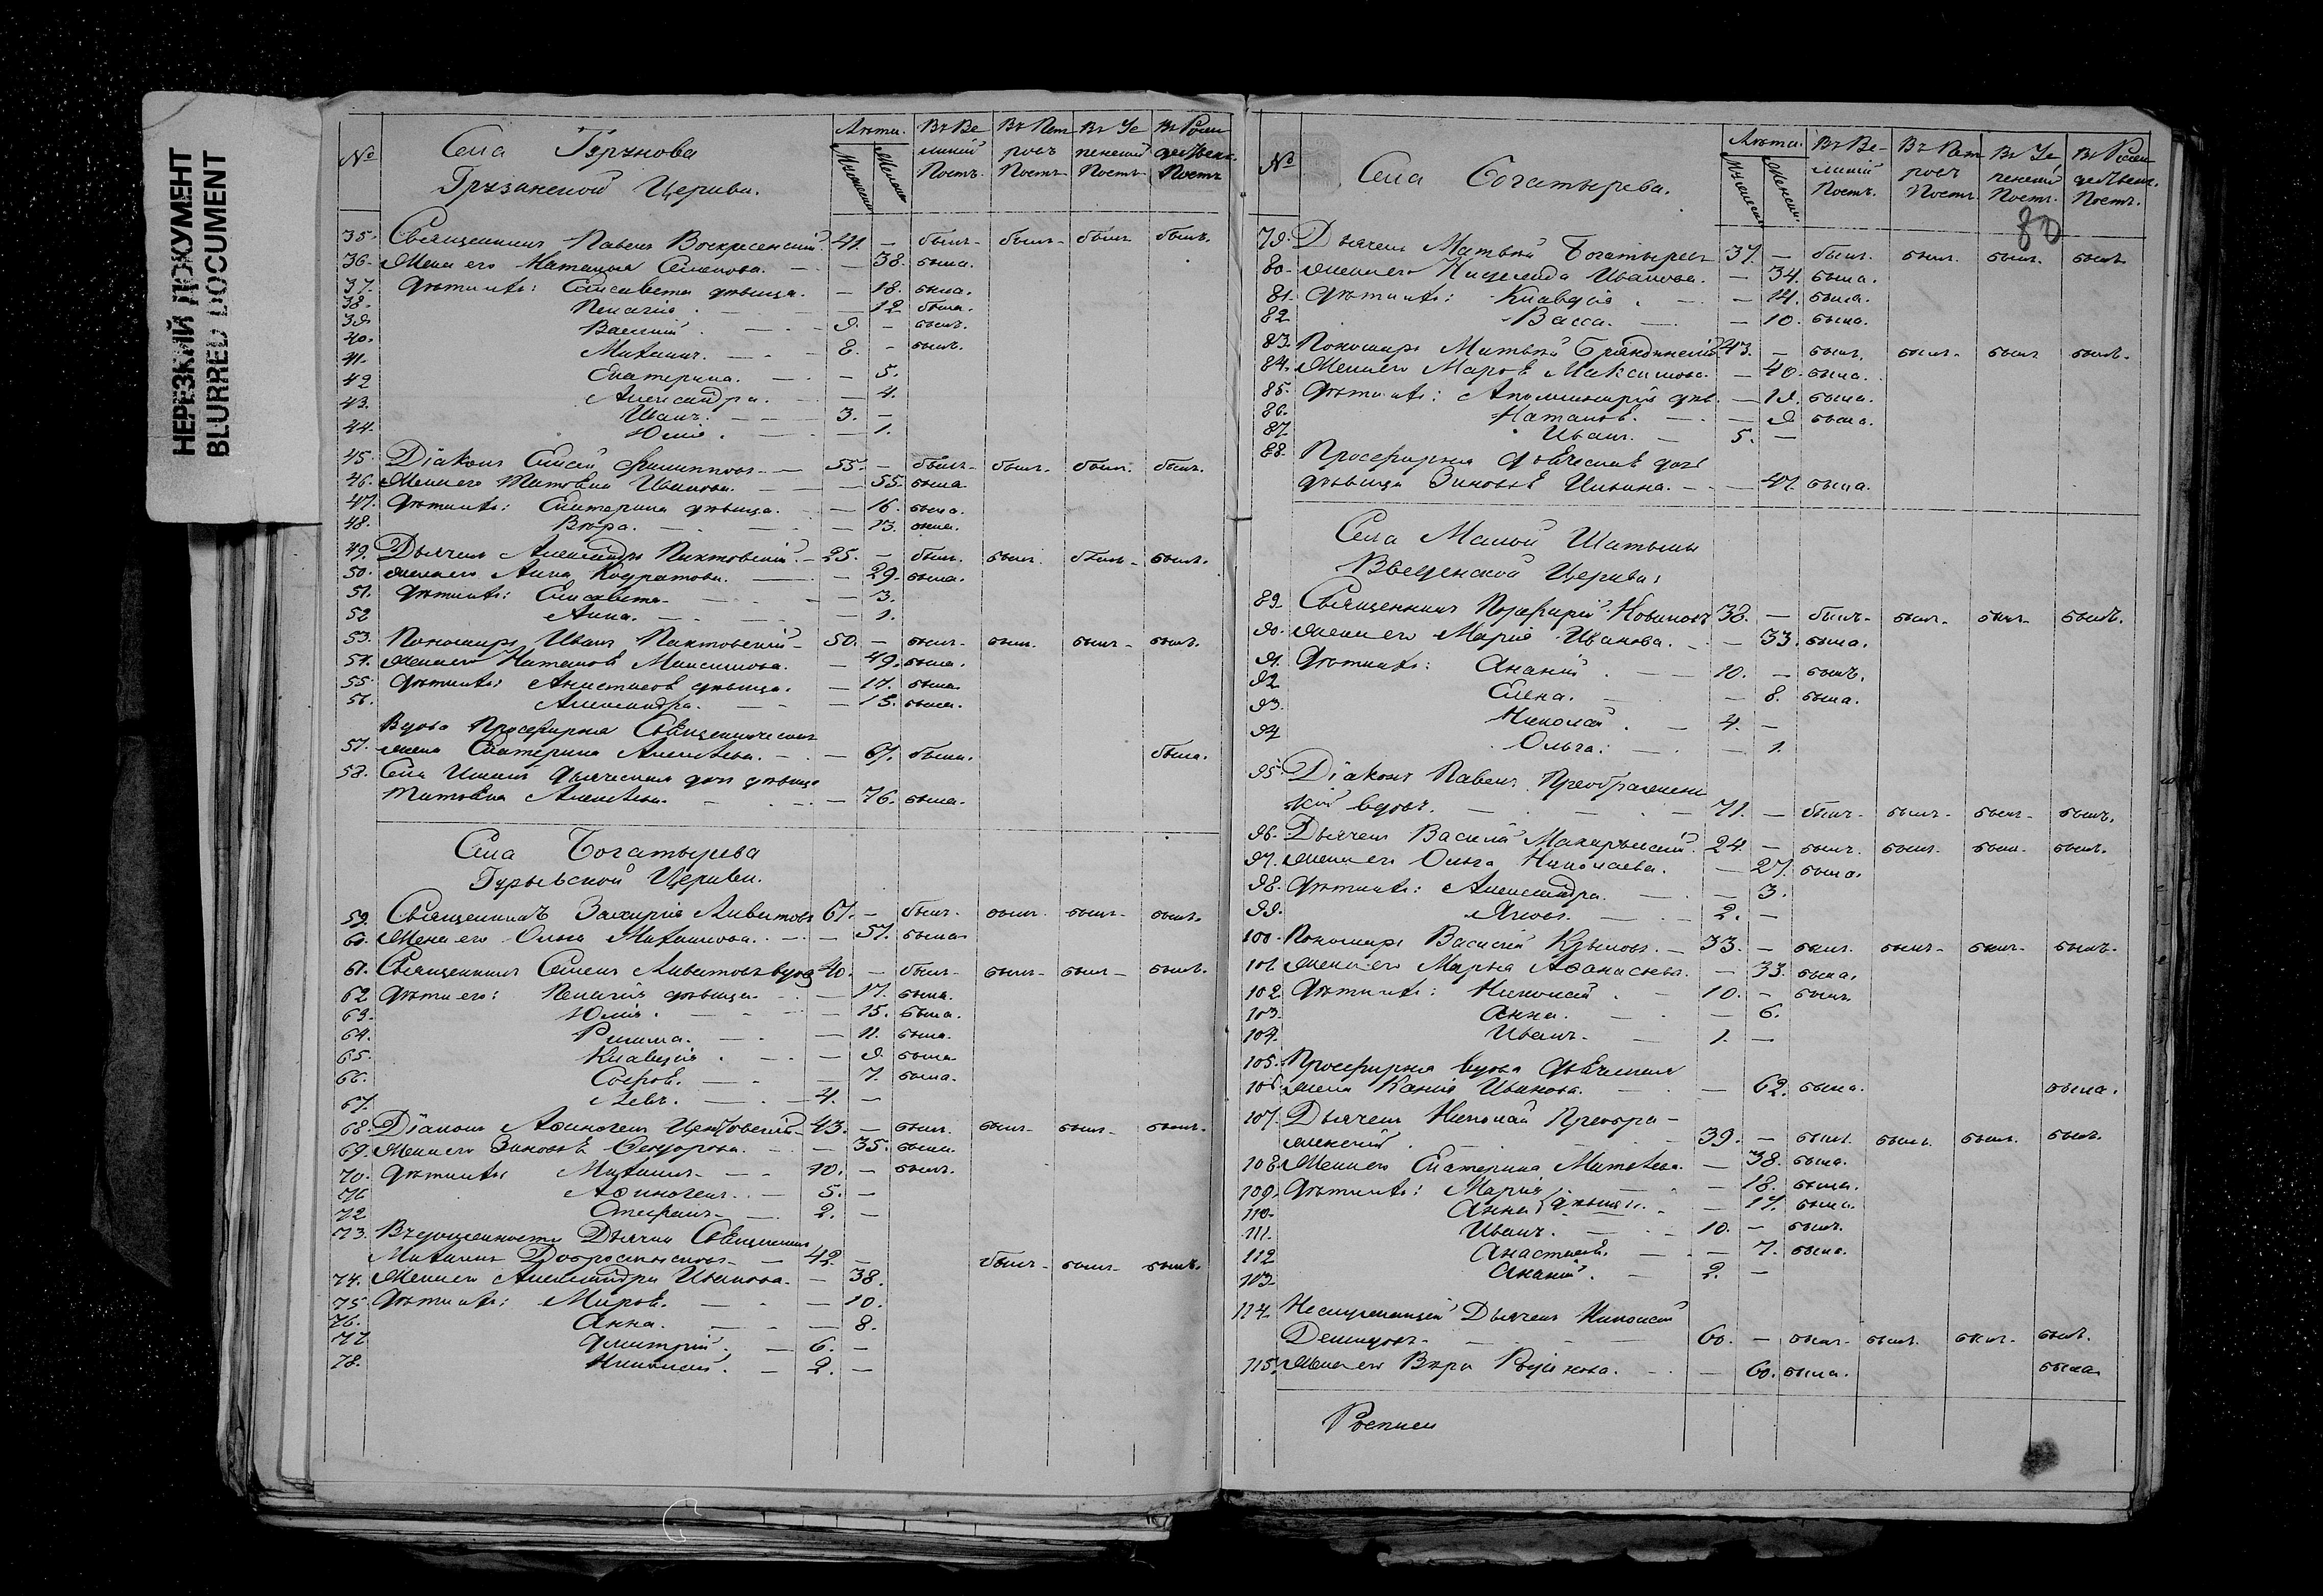 НЕРЕЗКИЙ ДОКУМЕНТ
BLURRED DOCUMENT
№ Села Лѣта. Въ Ве Въ Пет Въ Ус Въ Рож
Мужеска Женска ликій ровъ пенскій дествен.
Церкви. Постъ. Постъ Постъ Постъ
35. Священникъ Павелъ Воскресенскій. 41. — былъ. былъ. былъ былъ.
36. Жена его Наталья Семенова. — 38. была.
37. Дѣти ихъ: Елисавета дѣвица. — 18. была.
38. Пелагія. — 12 была.
39 Василій. 9. — былъ.
40. Михаилъ. 8. — былъ.
41. Екатерина. — 5.
42 Александра. — 4.
43. Иванъ. 3. —
44. Юлія. — 1.
45. Діаконъ Елисей Филипповъ — 55. — былъ. былъ. былъ. былъ.
46. Жена его Иванова. — 55. была
47. Дѣти ихъ: Екатерина дѣвица. — 16. была.
48. Вѣра. — 13. была.
49. Дьячекъ Александръ 25. — былъ. былъ. былъ. былъ.
50. Жена его Анна — 29. была.
51. Дѣти ихъ: Елисавета. — 3.
52 Анна. — 1.
53. Пономарь Иванъ 50. — былъ. былъ. былъ. былъ.
54. Жена его Наталія Максимова. — 49. была.
55. Дѣти ихъ: Анастасія дѣвица. — 17. была
56. Александра. — 15. была.
Вдова Просфирня Священническая
57. жена Екатерина Алексѣева. — 67. была. была.
58. дѣвица
Алексѣева. — 76. была.
Села Богатырева
Гурьевской Церкви.
59. Священникъ Захарія Ливановъ 67. — былъ. былъ. былъ. былъ.
60. Жена его Ольга Михайлова. — 57. была
61. Священникъ Семенъ Ливановъ вдовъ 40. — былъ. былъ. былъ. былъ.
62 Дѣти его: Пелагія дѣвица. — 17. была.
63. Юлія. — 15. была.
64. Римма. — 11. была.
65. Клавдія. — 9. была
66. Софія. — 7. была.
67. Левъ. 4. —
68. Діаконъ Аѳиногенъ 43. — былъ. былъ. былъ. былъ.
69. Жена его Зиновія Ѳедорова. — 35. была.
70. Дѣти ихъ Михаилъ. 10. — былъ.
71. Аѳиногенъ. 5. —
72 Стефанъ. 2. —
73. Въ должности Дьячка Священникъ
Михаилъ 42. — былъ. былъ. былъ.
74. Жена его Александра Иванова. — 38.
75 Дѣти ихъ: Марія. — 10.
76. Анна. — 8.
77 Дмитрій. 6. —
78. Николай. 2. —
№ Села Богатырева. Лѣта. Въ Ве- Въ Пет Въ Ус Въ Рож
Мужеска Женска. ликій ровъ пенскій дествен.
Постъ. Постъ Постъ. Постъ.
80
79. Дьячекъ Матвей Богатыревъ 37. — былъ. былъ. былъ. былъ
80. Жена его Иванова. — 34. была.
81. Дѣти ихъ: Клавдія. — 14. была.
82 Васса. — 10. была.
83. Пономарь Матвей 43. — былъ. былъ. былъ былъ.
84. Жена его Марѳа Максимова. — 40. была.
85. Дѣти ихъ: Аполлинарія дѣв. — 19. была.
86. Наталія. — 9 была.
87. Иванъ. 5. —
88. Просфирня
дѣвица Зиновія Ильина. — 47. была.
Села Малой Шатьмы
Введенской Церкви:
89. Священникъ Порфирій Новиковъ 38. — былъ. былъ. былъ. былъ.
90. Жена его Марія Иванова. — 33. была.
91. Дѣти ихъ: Ананій. 10. — былъ.
92 Елена. — 8. была.
93. Николай. 4. —
94 Ольга. — 1.
95. Діаконъ Павелъ Преображенс
кій вдовъ. 71. — былъ. былъ. былъ. былъ.
96. Дьячекъ Василій Макарьевскій. 24. — былъ. былъ. былъ. былъ.
97. Жена его Ольга Николаева. — 27. была.
98. Дѣти ихъ: Александра. — 3.
99. Яковъ. 2. —
100. Пономарь Василій Крыловъ. 33. — былъ. былъ. былъ. былъ.
101. Жена его Марья Аѳанасьева. — 33. была.
102 Дѣти ихъ: Николай. 10. — былъ
103. Анна. — 6.
104. Иванъ. 1. —
105. Просфирня вдова
106 жена Иванова. — 62. была. была.
107. Дьячекъ Николай Преобра-
женскій. 39. — былъ. былъ. былъ. былъ.
108. Жена его Екатерина Матвѣева. — 38. была.
109. Дѣти ихъ: Марія — 18. была.
110. Анна дѣвицы. — 17. была.
111. Иванъ. 10. — былъ.
112 Анастасія. — 7. была.
113 Ананій. 2. —
114. Неслужащій Дьячекъ Николай
Демидовъ. 60. — былъ. былъ. былъ. былъ.
115. Жена его Вѣра — 60. была. была
Росписи